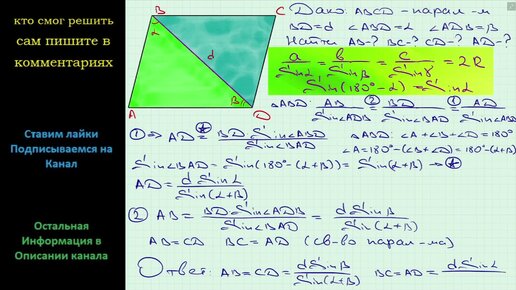 кто смог решить
сам пишите в
комментариях
Ставим лайки
Подписываемся на
Канал
Остальная
Информация в
Описании канала
B
C
A
D
α
d
β
Дано: ABCD - парал-м
BD=d ∠ABD=α ∠ADB=β
Найти AB-? BC-? CD-? AD-?
a/Sinα = b/Sinβ = c/Sinγ = 2R
Sin(180°-α) = Sinα
△ABD: AB/Sin∠ADB ②= BD/Sin∠BAD ①= AD/Sin∠ABD
① ⇒ AD = BD Sin∠ABD/Sin∠BAD
△ABD: ∠A+∠B+∠D=180°
∠A=180°-(∠B+∠D)=180°-(α+β)
Sin∠BAD = Sin(180°-(α+β)) = Sin(α+β) →
AD = d Sinα/Sin(α+β)
② AB = BD Sin∠ADB/Sin∠BAD = d Sinβ/Sin(α+β)
AB=CD BC=AD (св-во парал-ма)
Ответ: AB=CD= d Sinβ/Sin(α+β) BC=AD= d Sinα